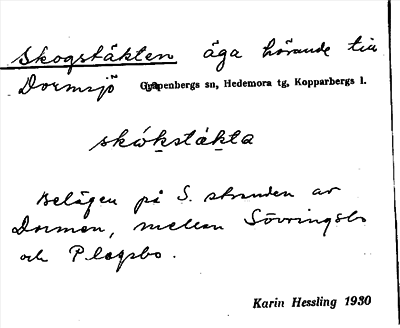 Skogstäkten äga hörande till
Dormsjö Garpenbergs sn, Hedemora tg, Kopparbergs l.
skókstäkta
Belägen på S. stranden av
Dormen, mellan Sövringsbo
och Plogsbo.
Karin Hessling 1930